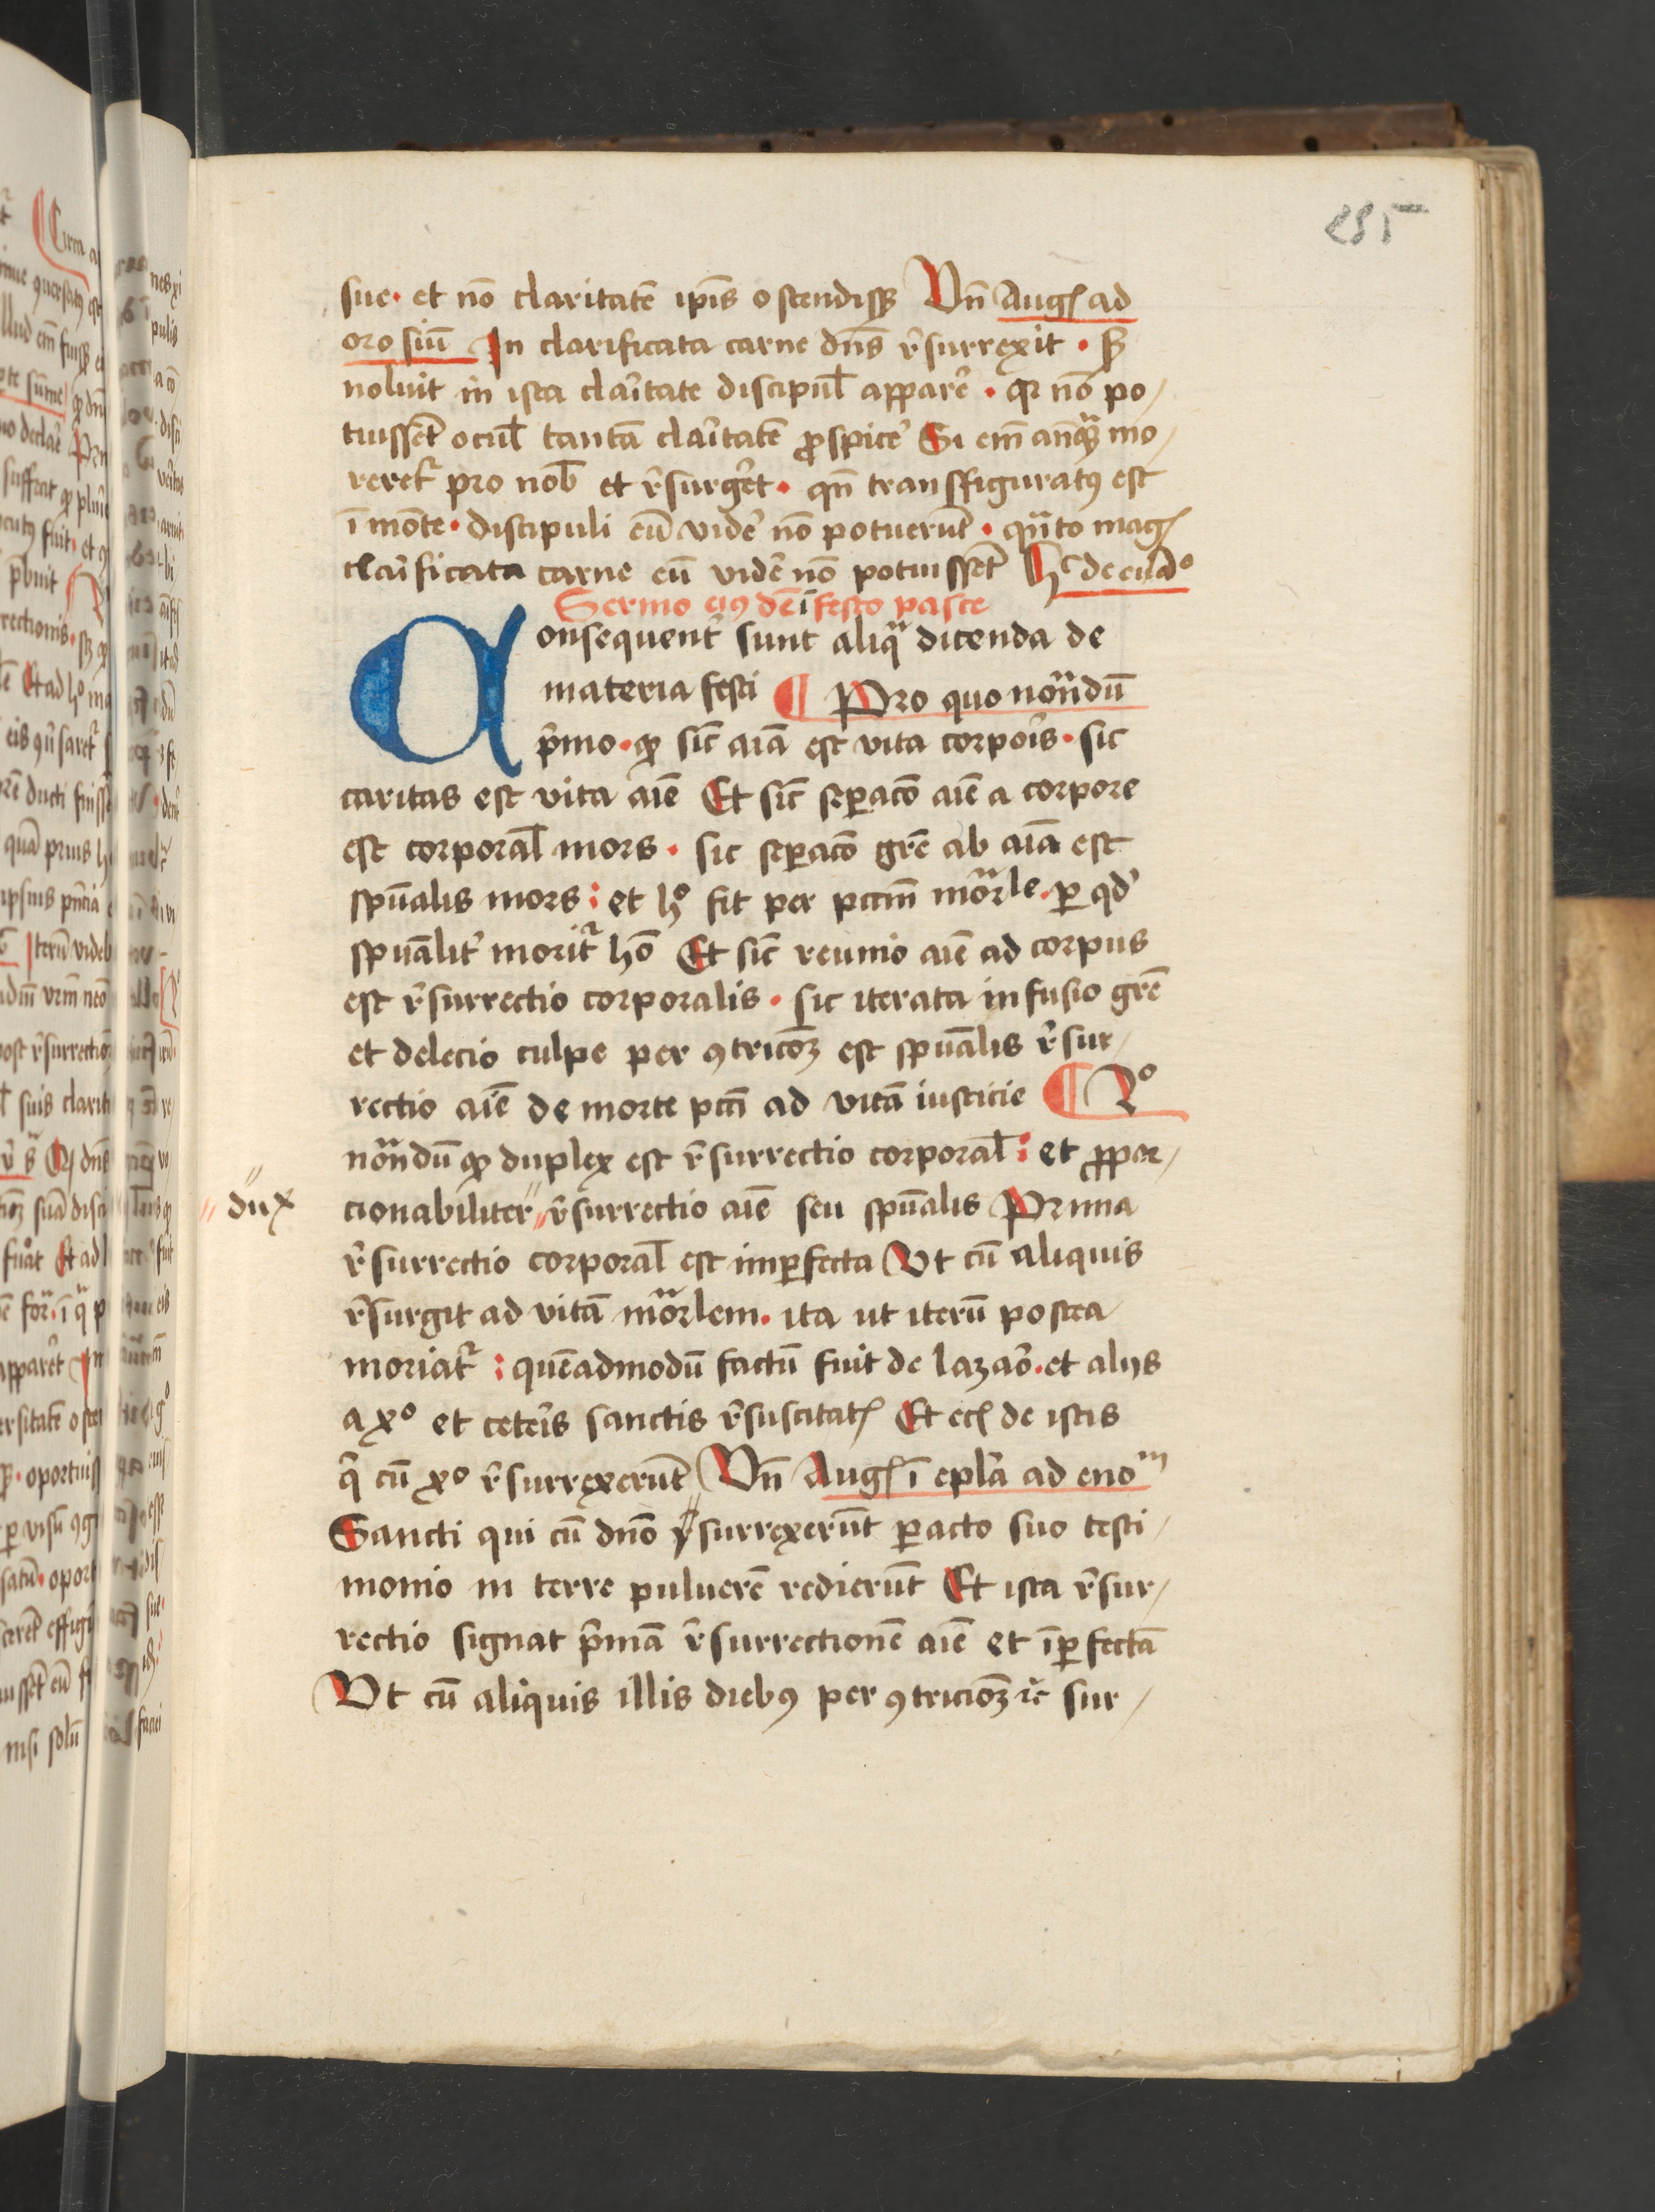 285
sue · et nō claritatē ip̄is ostendissꝫ Vn̄ Augꝭ ad
orosiū In clarificata carne dn̄s r̄surrexit · sꝫ
noluit in ista clar̄itate discipul̄ apparer̄ · qr nō po/
tuissēt ocul̄ tantā clar̄itatē ꝓspicer̄ Si em̄ anqᷓꝫ mo/
reret᷑ pro nob̄ et r̄surger̄et · qn̄ transfiguratꝰ est
ī mōte · discipuli eū vider̄ nō potuerūt · qᷓnto magꝭ
clar̄ificata carne eū vider̄ nō potuissēt hͨ de euāᵒ
Sermo eiꝰdē ī festo pasce
Consequent̄ sunt aliqᷓ dicenda de
materia festi ¶ Pro quo notᷓndū
p̄mo · ꝙ sic̄ aīa est vita corpor̄is · sic
caritas est vita aīe Et sic̄ sepaꝑco aīe a corpore
est corporal̄ mors · sic sep̄acō gr̄e ab aīa est
spūalis mors : et hᵒ fit per pctm̄ morᷓle · ꝑ qd̄
spūalit̄ morit᷑ hō Et sic̄ reunio aīe ad corpus
est r̄surrectio corporalis · sic iterata infusio gr̄e
et delecio culpe per ꝯtricōꝫ est spūalis r̄sur/
rectio aīe de morte pctī ad vitā iusticie ¶ 2ᵒ
notᷓndū ꝙ duplex est r̄surrectio corporal̄ : et ꝓpor/
dux cionabiliter // r̄surrectio aīe seu spūalis Prima
r̄surrectio corporal̄ est imꝑfecta Vt cū aliquis
r̄surgit ad vitā morᷓlem · ita ut iterū postea
moriat᷑ : quēadmodū factū fuit de lazaro · et alijs
a xᵒ et ceter̄is sanctis r̄suscitatꝭ Et ecꝭ de istis
q̄ cū xᵒ r̄surrexerūt Vn̄ Augꝭ ī epl̄a ad enoᵐ
Sancti qui cū dn̄o r̄surrexerūt ꝑacto suo testi/
monio in terre puluerē redierūt Et ista r̄sur/
rectio signat p̄mā r̄surrectionē aīe et īꝑfectā
Vt cū aliquis illis diebꝰ per ꝯtricioꝫ ⁊c̄ sur/